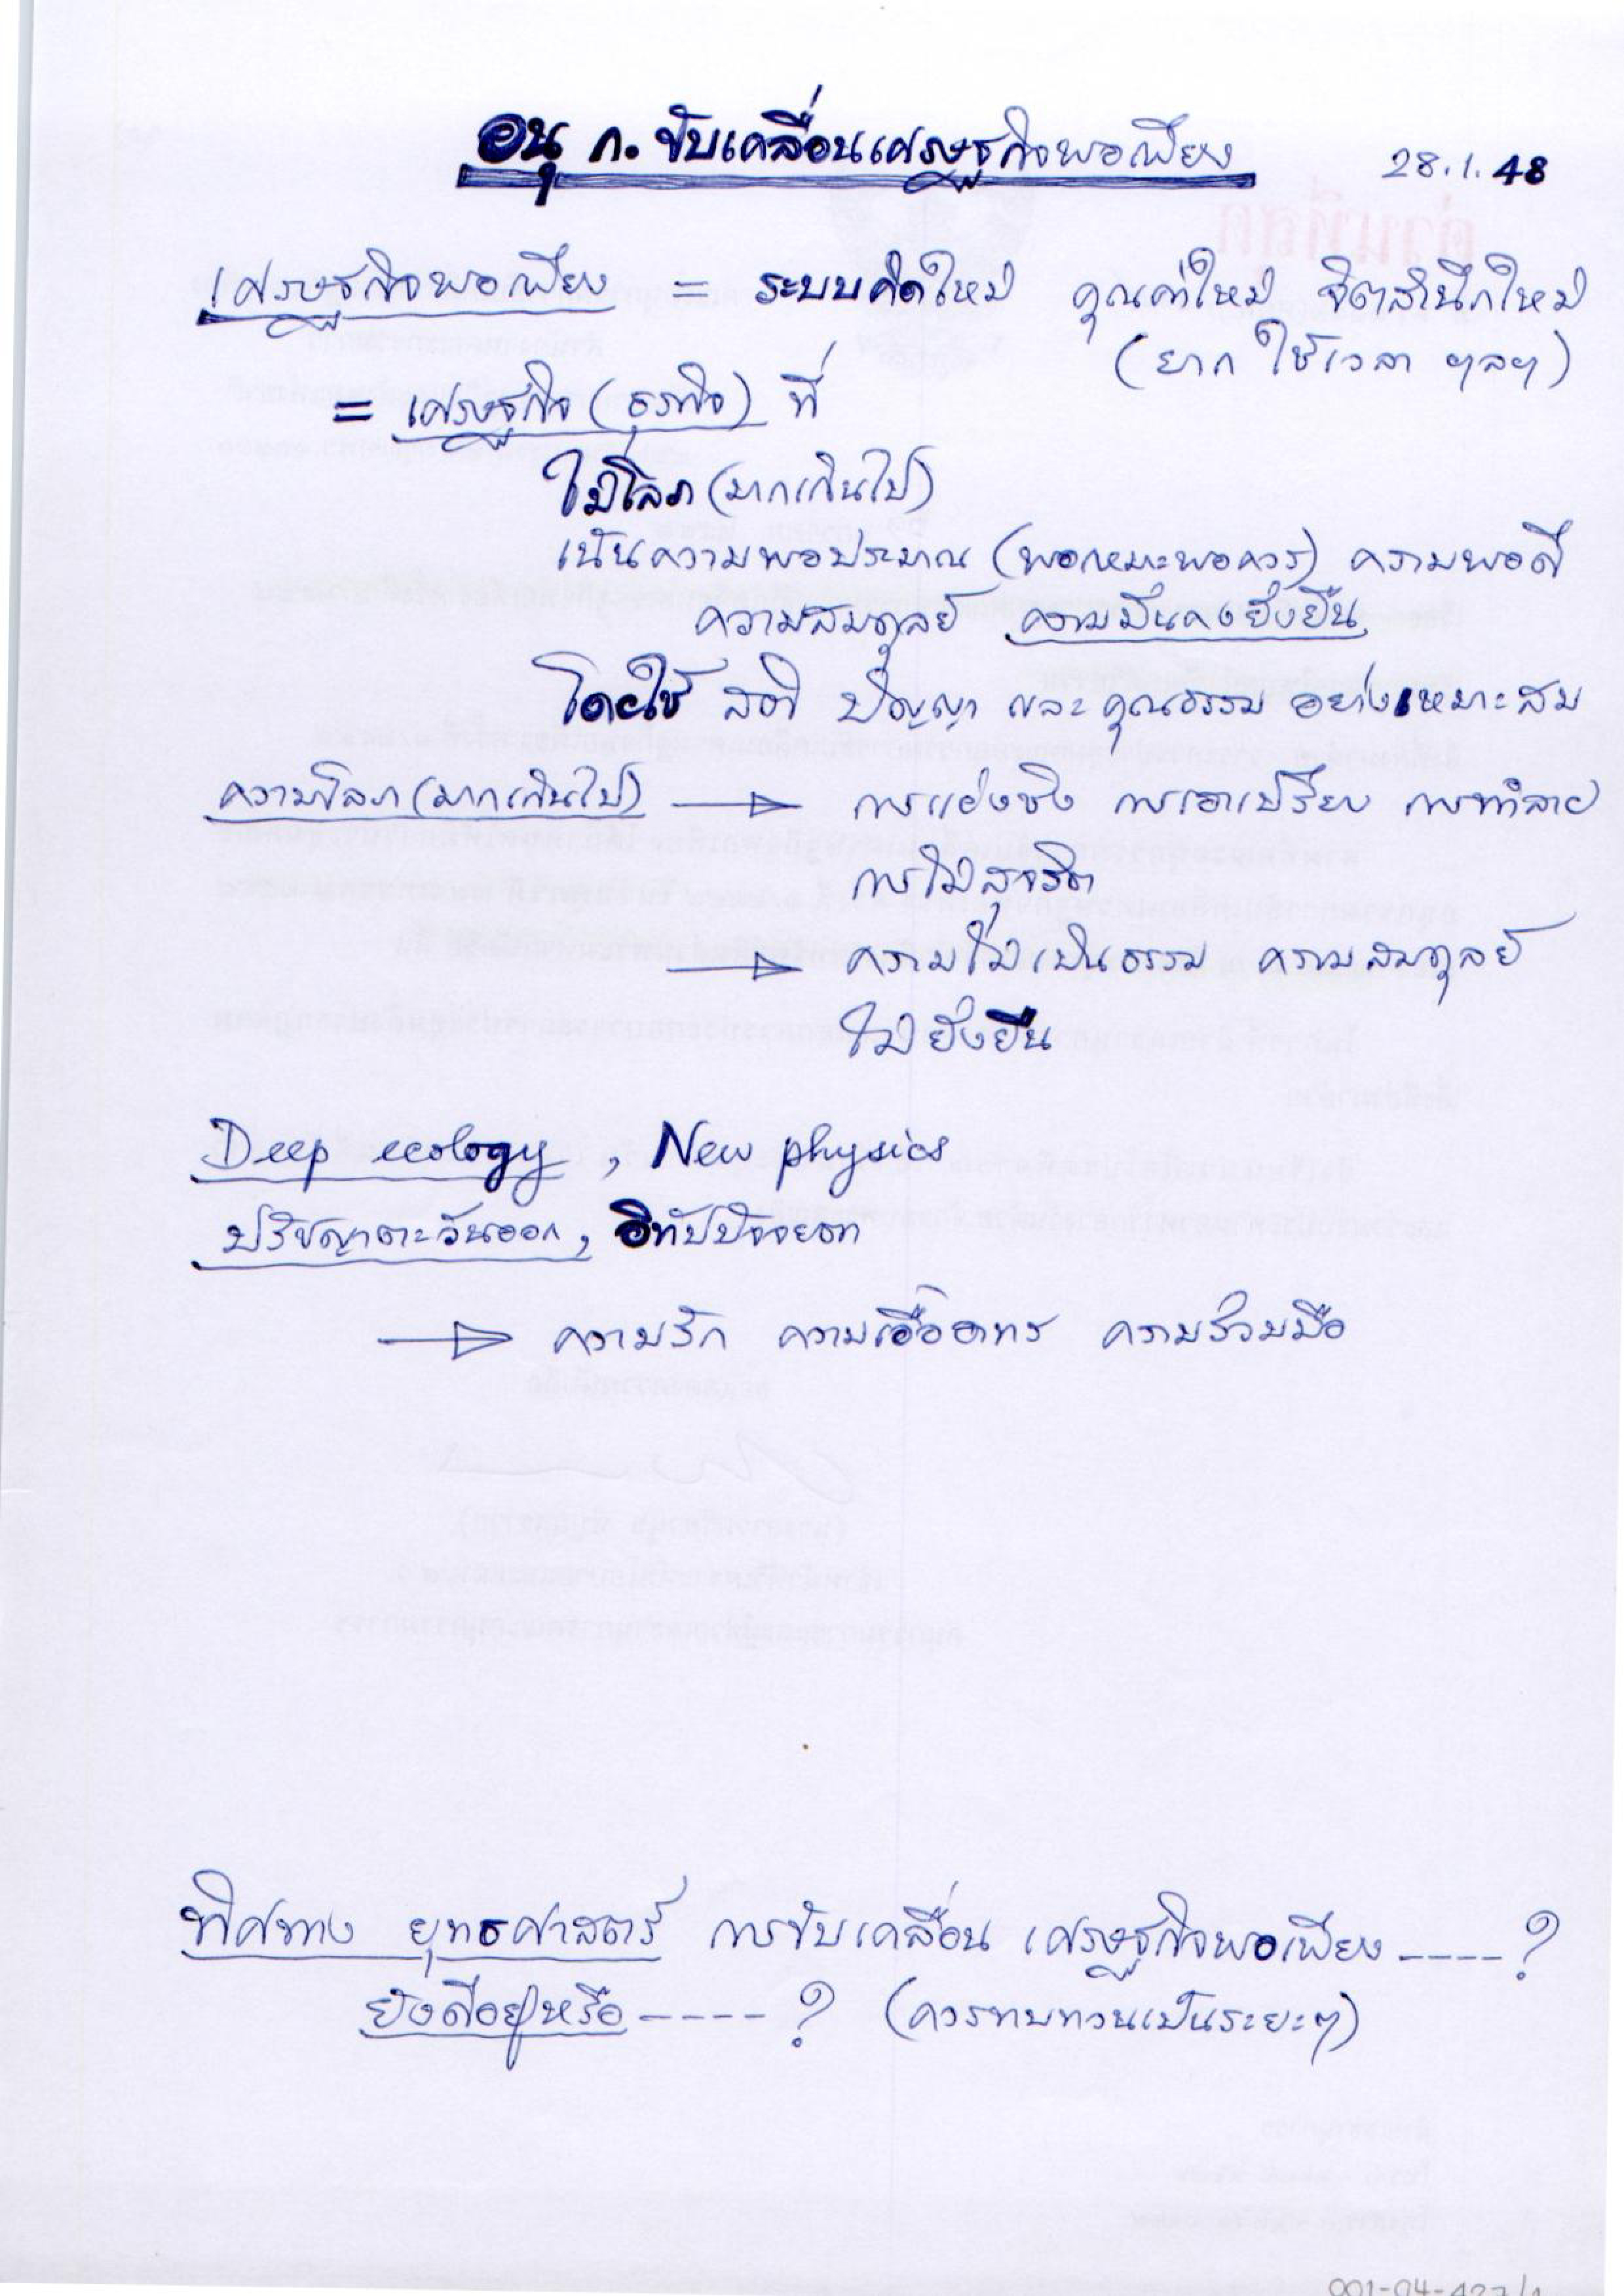 อนุ ก. ขับเคลื่อนเศรษฐกิจพอเพียง 28.1.48
เศรษฐกิจพอเพียง = ระบบคิดใหม่ คุณค่าใหม่ จิตสำนึกใหม่
(ยาก ใช้เวลา ฯลฯ)
= เศรษฐกิจ (ธุรกิจ) ที่
ไม่โลภ (มากเกินไป)
เน้นความพอประมาณ (พอเหมาะพอควร) ความพอดี
ความสมดุลย์ ความมั่นคงยั่งยืน
โดยใช้ สติ ปัญญา และ คุณธรรม อย่างเหมาะสม
ความโลภ (มากเกินไป) → การแย่งชิง การเอาเปรียบ การทำลาย
การไม่สุจริต
→ ความไม่เป็นธรรม ความสมดุลย์
ไม่ยั่งยืน
Deep ecology, New physics
ปรัชญาตะวันออก, อิทัปปัจจยตา
→ ความรัก ความเอื้ออาทร ความร่วมมือ
ทิศทาง ยุทธศาสตร์ การขับเคลื่อน เศรษฐกิจพอเพียง ----?
ยังดีอยู่หรือ ----? (ควรทบทวนเป็นระยะๆ)